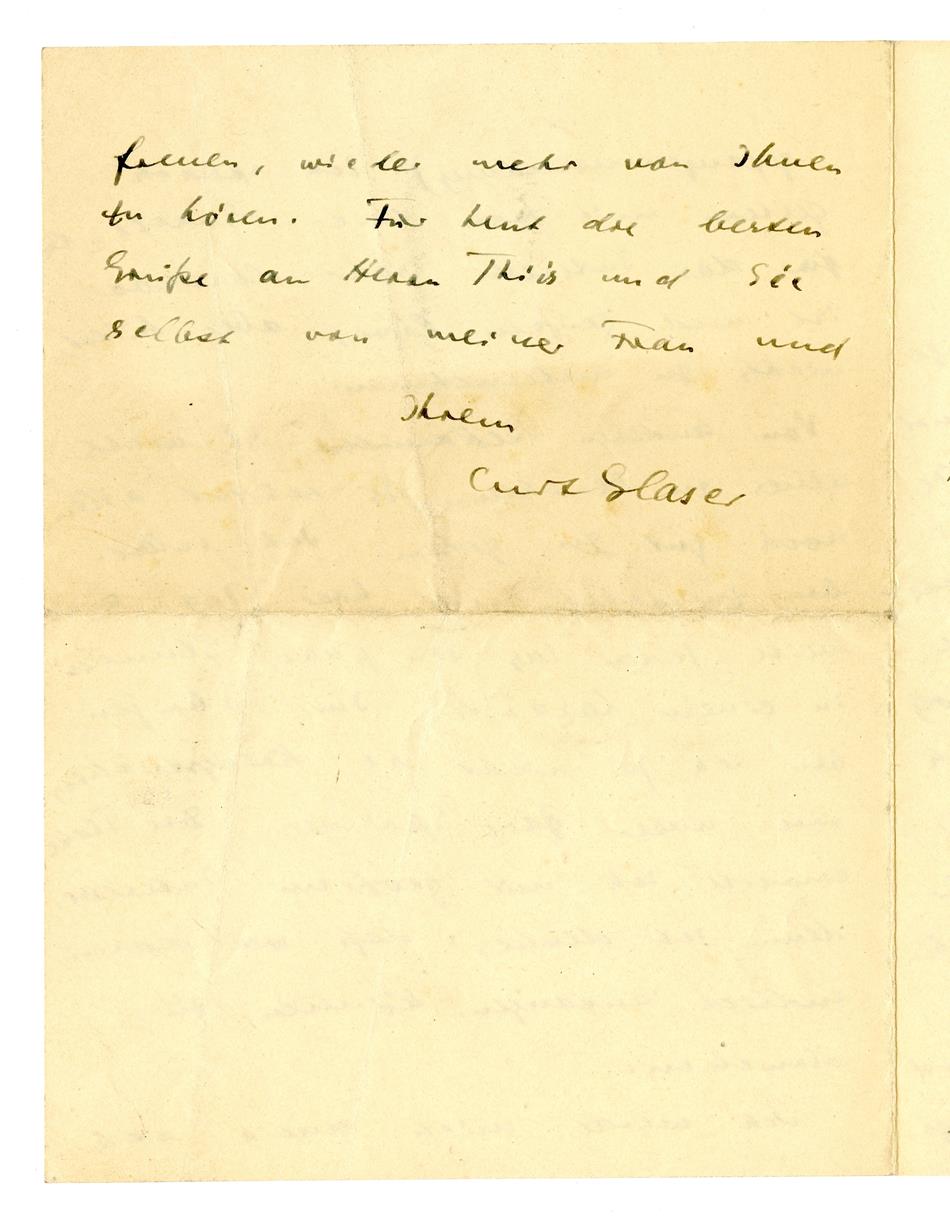 freuen, wieder mehr von Ihnen
zu hören. Für heut die besten
Grüße an Herrn Thiis und Sie
selbst von meiner Frau und
Ihrem
Curt Glaser